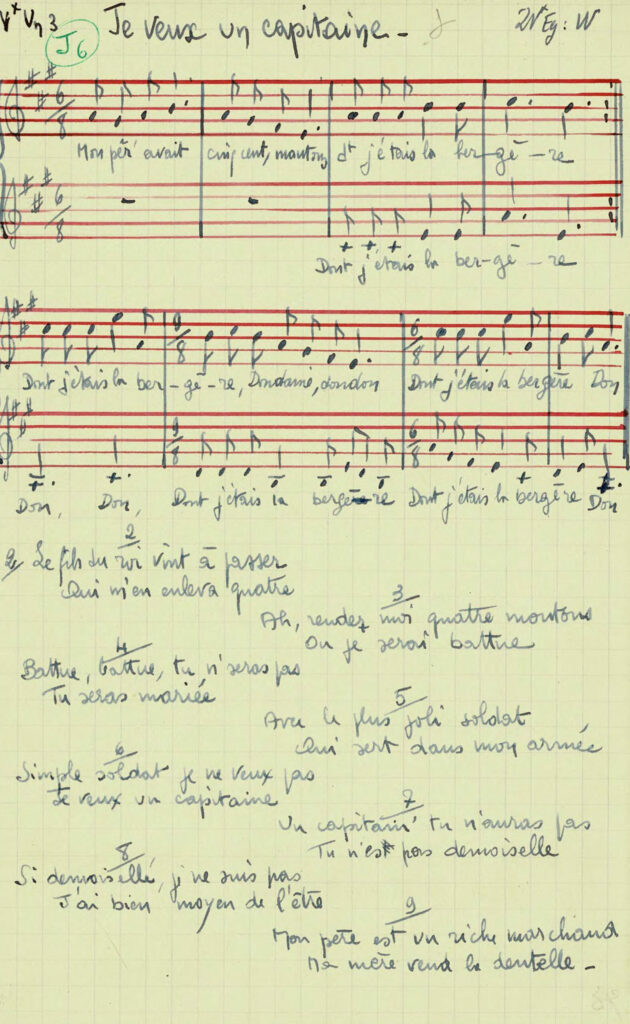 J6
Je veux un capitaine -
6/8
Mon pèr' avait cinq cent moutons dt j'étais la ber-gè-re
6/8
Dont j'étais la ber-gè-re
Dont j'étais la ber-gè-re, Dondaine, dondon Dont j'étais la bergère Don
9/8 6/8
Don, Don, Dont j'étais la bergère Dont j'étais la bergère Don
9/8 6/8
2
Le fils du roi vint à passer
Qui m'en enleva quatre
3
Ah, rendez moi quatre moutons
Ou je serai battue
4
Battue, battue, tu n'seras pas
Tu seras mariée
5
Avec le plus joli soldat
Qui sert dans mon armée
6
Simple soldat je ne veux pas
Je veux un capitaine
7
Un capitain' tu n'auras pas
Tu n'est pas demoiselle
8
Si demoiselle, j'ne suis pas
J'ai bien moyen de l'être
9
Mon père est un riche marchand
Ma mère vend la dentelle -